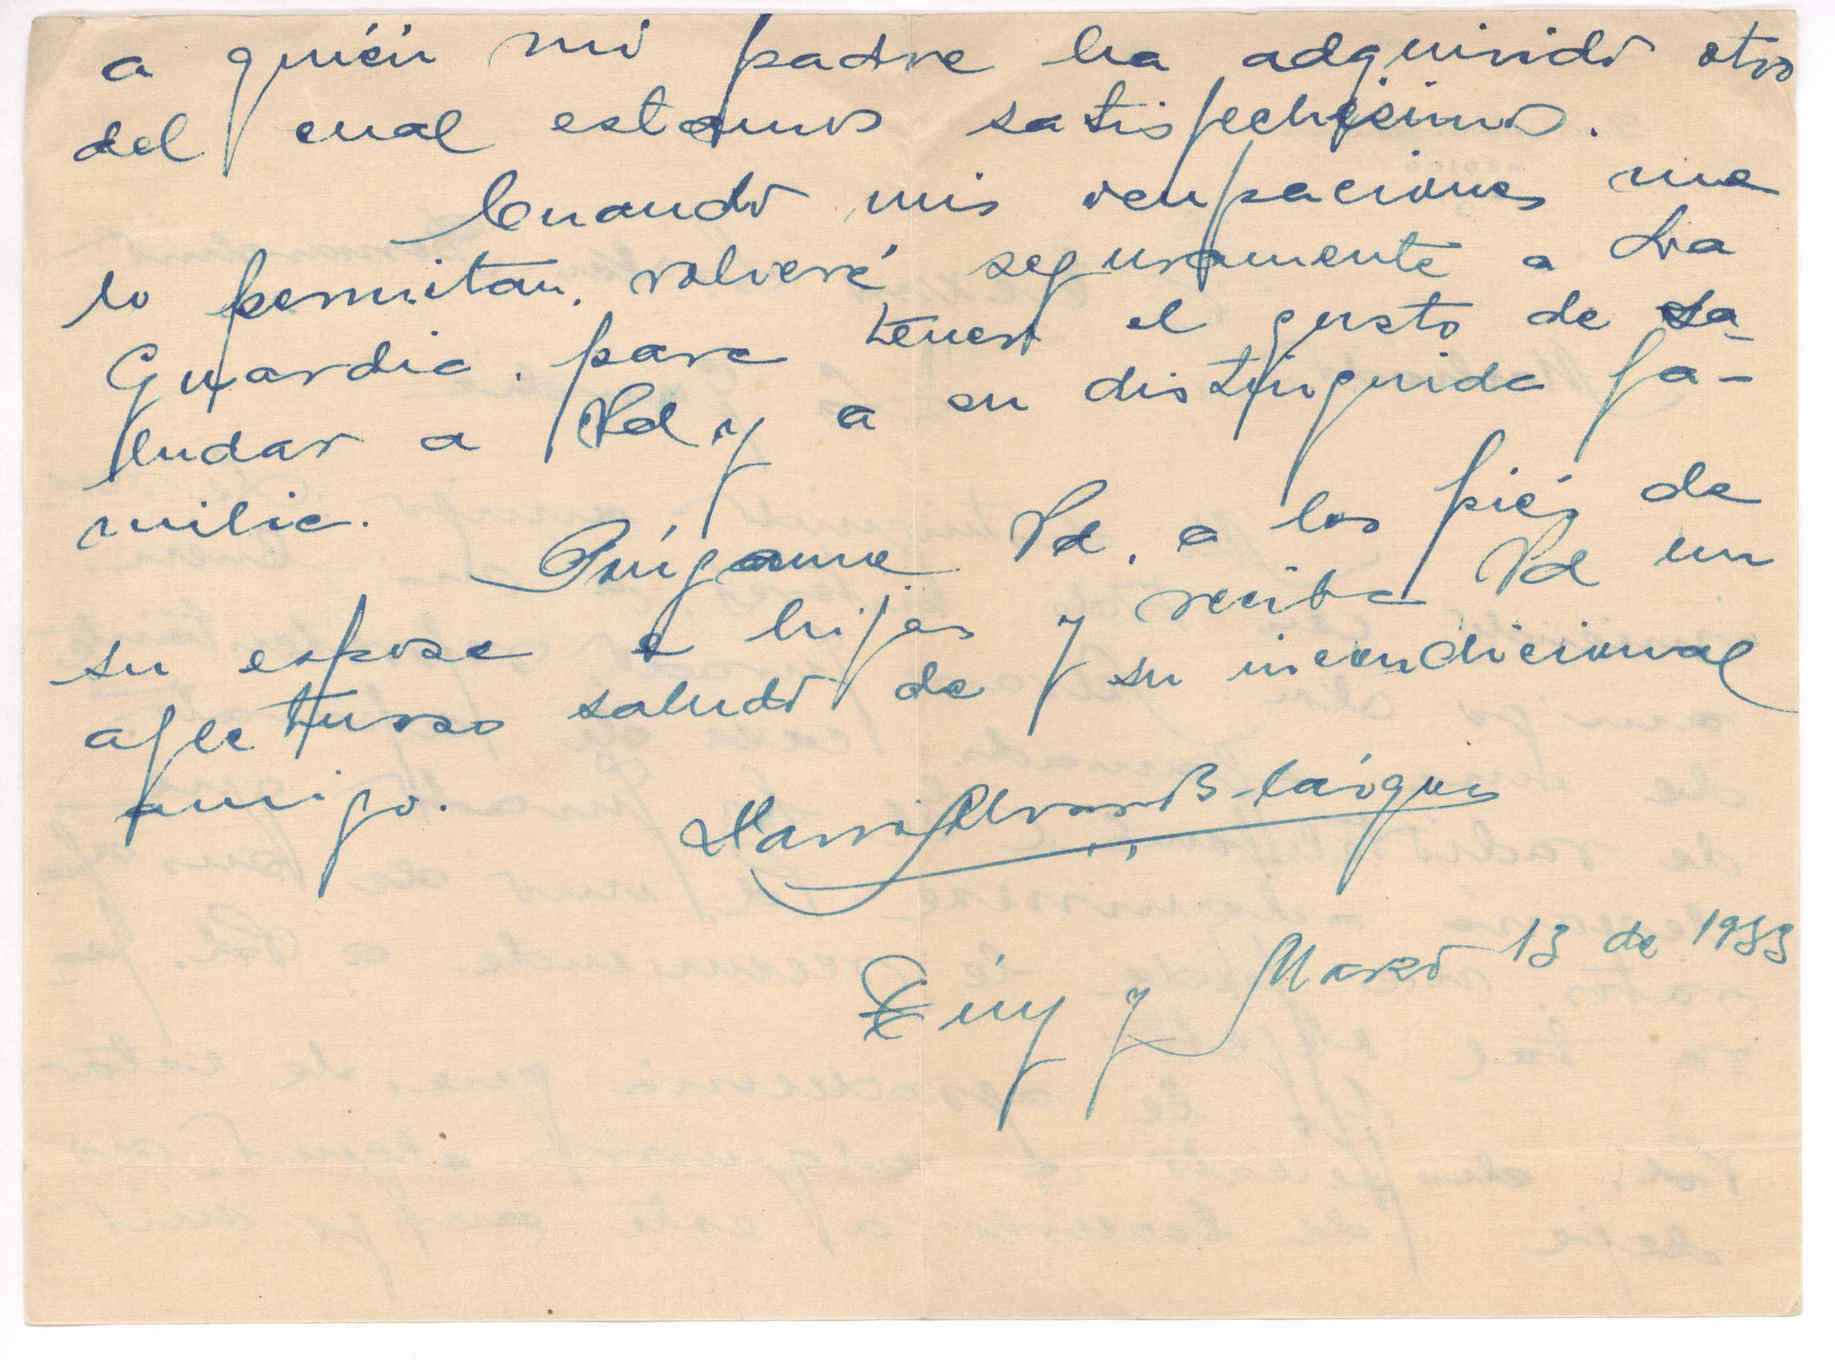 a quién mi padre ha adquirido otro
del cual estamos satisfechísimos.
Cuando mis ocupaciones me
lo permitan, volveré seguramente a La
Guardia, para tener el gusto de sa-
ludar a Vd y a su distinguida fa-
milia.
Póngame Vd. a los piés de
su esposa e hijas y reciba Vd un
afectuoso saludo de su incondicional
amigo.
Alvarez Blázquez
Túy y Marzo 13 de 1933